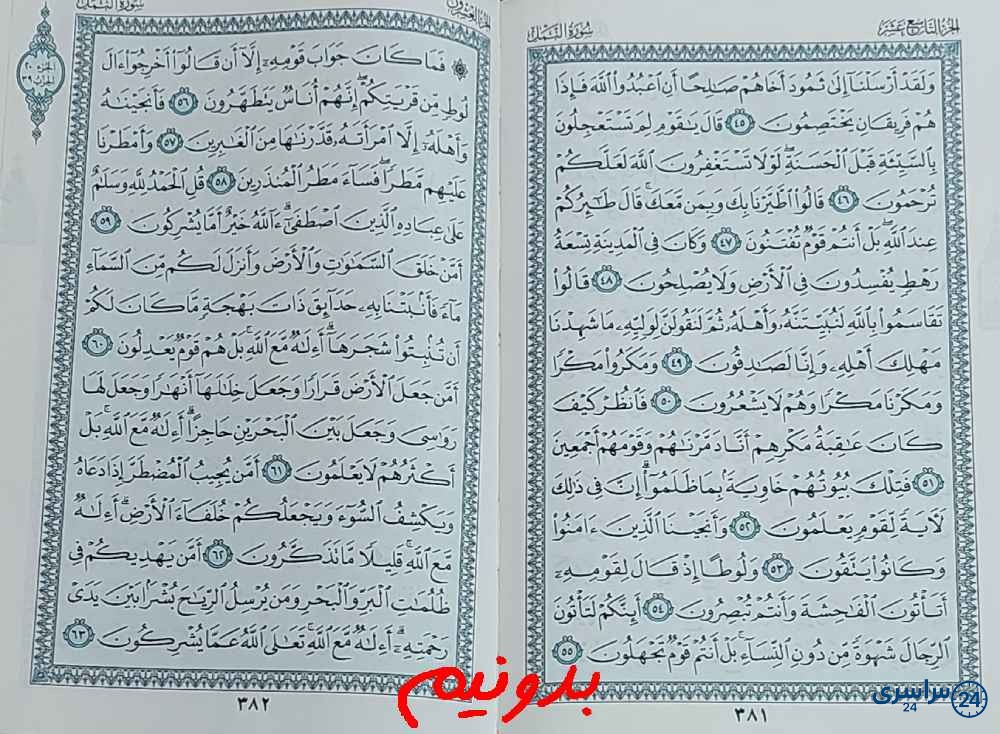 الجزء التاسع عشر
سورة النمل
وَلَقَدْ أَرْسَلْنَآ إِلَىٰ ثَمُودَ أَخَاهُمْ صَٰلِحًا أَنِ ٱعْبُدُوا۟ ٱللَّهَ فَإِذَا
هُمْ فَرِيقَانِ يَخْتَصِمُونَ ٤٥ قَالَ يَٰقَوْمِ لِمَ تَسْتَعْجِلُونَ
بِٱلسَّيِّئَةِ قَبْلَ ٱلْحَسَنَةِ ۖ لَوْلَا تَسْتَغْفِرُونَ ٱللَّهَ لَعَلَّكُمْ
تُرْحَمُونَ ٤٦ قَالُوا۟ ٱطَّيَّرْنَا بِكَ وَبِمَن مَّعَكَ ۚ قَالَ طَٰٓئِرُكُمْ
عِندَ ٱللَّهِ ۖ بَلْ أَنتُمْ قَوْمٌ تُفْتَنُونَ ٤٧ وَكَانَ فِى ٱلْمَدِينَةِ تِسْعَةُ
رَهْطٍ يُفْسِدُونَ فِى ٱلْأَرْضِ وَلَا يُصْلِحُونَ ٤٨ قَالُوا۟
تَقَاسَمُوا۟ بِٱللَّهِ لَنُبَيِّتَنَّهُۥ وَأَهْلَهُۥ ثُمَّ لَنَقُولَنَّ لِوَلِيِّهِۦ مَا شَهِدْنَا
مَهْلِكَ أَهْلِهِۦ وَإِنَّا لَصَٰدِقُونَ ٤٩ وَمَكَرُوا۟ مَكْرًا
وَمَكَرْنَا مَكْرًا وَهُمْ لَا يَشْعُرُونَ ٥٠ فَٱنظُرْ كَيْفَ
كَانَ عَٰقِبَةُ مَكْرِهِمْ أَنَّا دَمَّرْنَٰهُمْ وَقَوْمَهُمْ أَجْمَعِينَ
٥١ فَتِلْكَ بُيُوتُهُمْ خَاوِيَةًۢ بِمَا ظَلَمُوٓا۟ ۗ إِنَّ فِى ذَٰلِكَ
لَءَايَةً لِّقَوْمٍ يَعْلَمُونَ ٥٢ وَأَنجَيْنَا ٱلَّذِينَ ءَامَنُوا۟
وَكَانُوا۟ يَتَّقُونَ ٥٣ وَلُوطًا إِذْ قَالَ لِقَوْمِهِۦٓ
أَتَأْتُونَ ٱلْفَٰحِشَةَ وَأَنتُمْ تُبْصِرُونَ ٥٤ أَئِنَّكُمْ لَتَأْتُونَ
ٱلرِّجَالَ شَهْوَةً مِّن دُونِ ٱلنِّسَآءِ ۚ بَلْ أَنتُمْ قَوْمٌ تَجْهَلُونَ ٥٥
٣٨١
الجزء العشرون
سورة النمل
الجزء ٢٠
الحزب ٣٩
۞ فَمَا كَانَ جَوَابَ قَوْمِهِۦٓ إِلَّآ أَن قَالُوٓا۟ أَخْرِجُوٓا۟ ءَالَ
لُوطٍ مِّن قَرْيَتِكُمْ ۖ إِنَّهُمْ أُنَاسٌ يَتَطَهَّرُونَ ٥٦ فَأَنجَيْنَٰهُ
وَأَهْلَهُۥٓ إِلَّا ٱمْرَأَتَهُۥ قَدَّرْنَٰهَا مِنَ ٱلْغَٰبِرِينَ ٥٧ وَأَمْطَرْنَا
عَلَيْهِم مَّطَرًا ۖ فَسَآءَ مَطَرُ ٱلْمُنذَرِينَ ٥٨ قُلِ ٱلْحَمْدُ لِلَّهِ وَسَلَٰمٌ
عَلَىٰ عِبَادِهِ ٱلَّذِينَ ٱصْطَفَىٰٓ ۗ ءَآللَّهُ خَيْرٌ أَمَّا يُشْرِكُونَ ٥٩
أَمَّنْ خَلَقَ ٱلسَّمَٰوَٰتِ وَٱلْأَرْضَ وَأَنزَلَ لَكُم مِّنَ ٱلسَّمَآءِ
مَآءً فَأَنۢبَتْنَا بِهِۦ حَدَآئِقَ ذَاتَ بَهْجَةٍ مَّا كَانَ لَكُمْ
أَن تُنۢبِتُوا۟ شَجَرَهَآ ۗ أَءِلَٰهٌ مَّعَ ٱللَّهِ ۚ بَلْ هُمْ قَوْمٌ يَعْدِلُونَ ٦٠
أَمَّن جَعَلَ ٱلْأَرْضَ قَرَارًا وَجَعَلَ خِلَٰلَهَآ أَنْهَٰرًا وَجَعَلَ لَهَا
رَوَٰسِىَ وَجَعَلَ بَيْنَ ٱلْبَحْرَيْنِ حَاجِزًا ۗ أَءِلَٰهٌ مَّعَ ٱللَّهِ ۚ بَلْ
أَكْثَرُهُمْ لَا يَعْلَمُونَ ٦١ أَمَّن يُجِيبُ ٱلْمُضْطَرَّ إِذَا دَعَاهُ
وَيَكْشِفُ ٱلسُّوٓءَ وَيَجْعَلُكُمْ خُلَفَآءَ ٱلْأَرْضِ ۗ أَءِلَٰهٌ
مَّعَ ٱللَّهِ ۚ قَلِيلًا مَّا تَذَكَّرُونَ ٦٢ أَمَّن يَهْدِيكُمْ فِى
ظُلُمَٰتِ ٱلْبَرِّ وَٱلْبَحْرِ وَمَن يُرْسِلُ ٱلرِّيَٰحَ بُشْرًۢا بَيْنَ يَدَىْ
رَحْمَتِهِۦٓ ۗ أَءِلَٰهٌ مَّعَ ٱللَّهِ ۚ تَعَٰلَى ٱللَّهُ عَمَّا يُشْرِكُونَ ٦٣
٣٨٢
بدونیم
سراسری 24
24